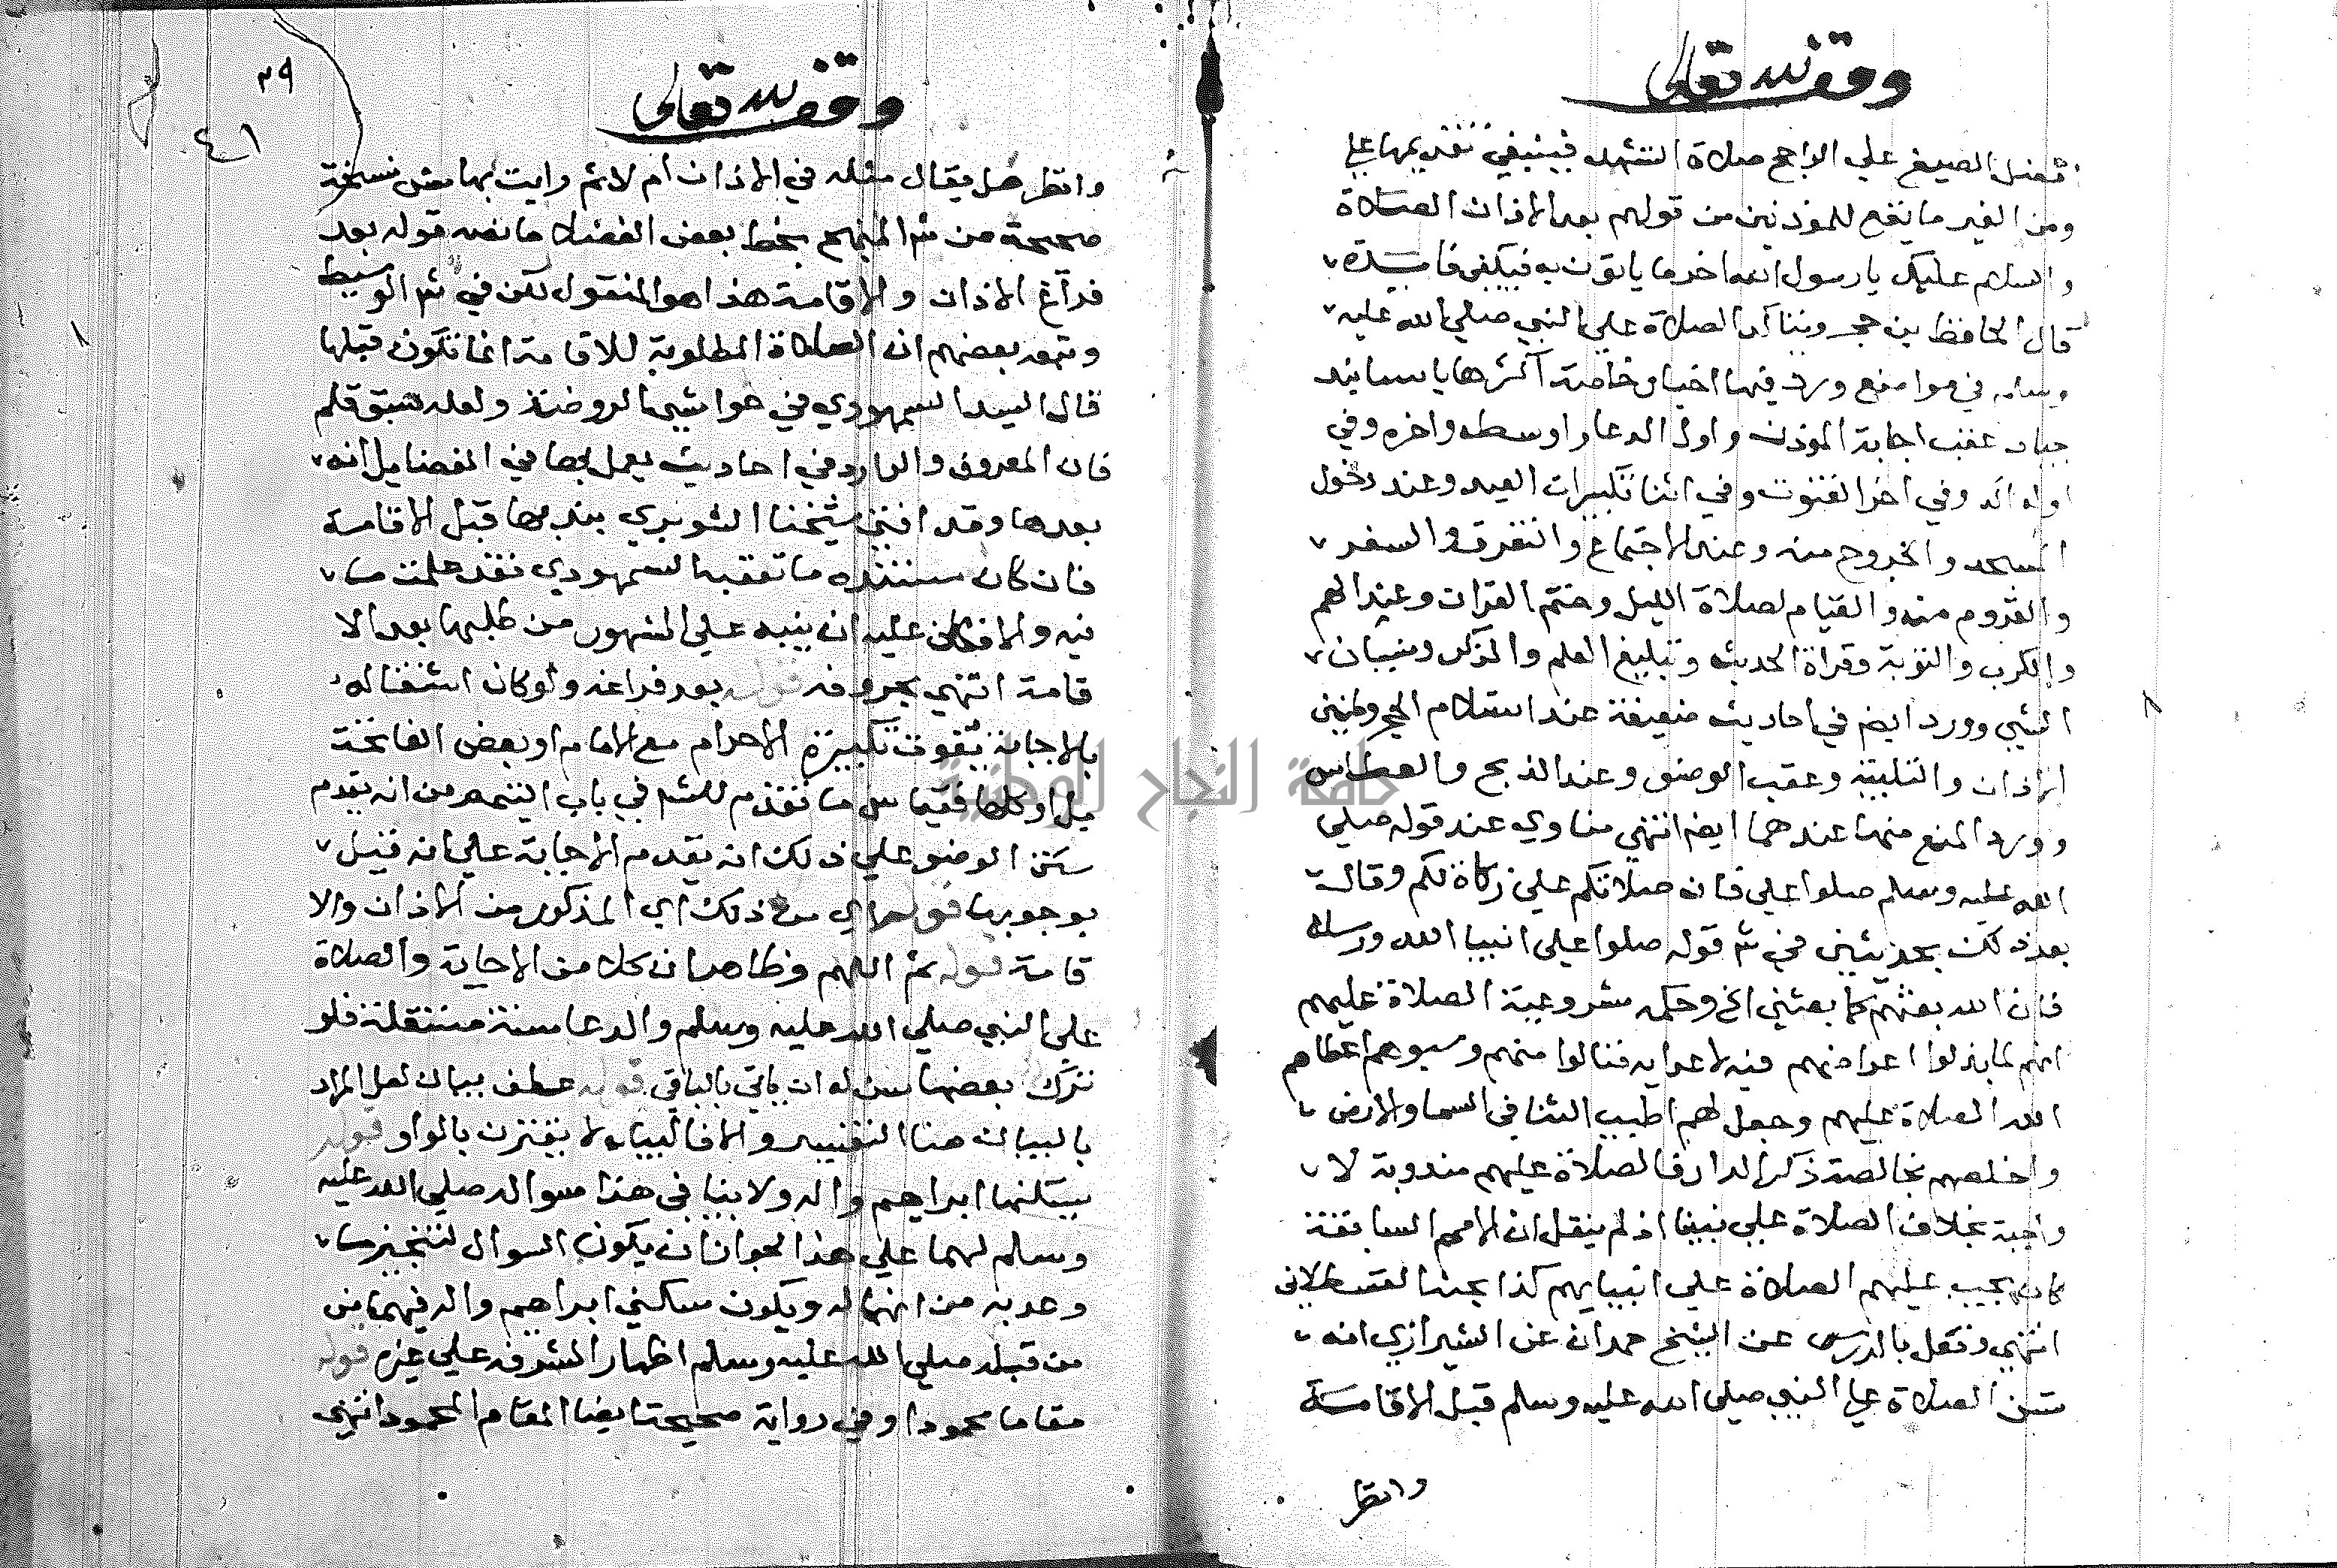 وقف لله تعالى
افضل الصيغ علي الراجح صلاة التشهد فينبغي تقديمها علي
ومن الغير ما يقع للموذنين من قولهم بعد الاذان الصلاة
والسلام عليك يا رسول الله اخر ما ياتون به فيكفي فايدة
قال الحافظ بن حجر ويتاكد الصلاة علي النبي صلي الله عليه
وسلم في مواضع ورد فيها اخبار خاصة اكثرها باسانيد
جياد عقب اجابة الموذن واول الدعا واوسطه واخره وفي
اوله اكد وفي اخر القنوت وفي اثنا تكبيرات العيد وعند دخول
المسجد والخروج منه وعند الاجتماع والتفرق والسفر
والقدوم منه والقيام لصلاة الليل وختم القران وعند الهم
والكرب والتوبة وقراة الحديث وتبليغ العلم والذكر ونسيان
الشي وورد ايضم في احاديث ضعيفة عند استلام الحجر وطنين
الاذان والتلبية وعقب الوضو وعند الذبح والعطاس
وورد المنع منها عندهما ايضم انتهي مناوي عند قوله صلي
الله عليه وسلم صلوا علي فان صلاتكم علي زكاة لكم وقال
بعد ذلك بحديثين في شم قوله صلوا علي انبيا الله ورسله
فان الله بعثهم كما بعثني الخ وحكمه مشروعية الصلاة عليهم
انهم لما بذلوا اعراضهم فيه لاعدايه فنالوا منهم وسبوهم اعطاهم
الله الصلاة عليهم وجعل لهم اطيب الثنا في السما والارض
واخلصهم بخالصة ذكر الدار فالصلاة عليهم مندوبة لا
واجبة بخلاف الصلاة علي نبينا اذ لم ينقل ان الامم السابقة
كان يجب عليهم الصلاة علي انبيايهم كذا بحثه القسطلاني
انتهي ونقل بالدرس عن الشيخ حمدان عن الشيرازي انه
تسن الصلاة علي النبي صلي الله عليه وسلم قبل الاقامة
وانظر
٣٩
٤١
وقف لله تعالى
وانظر هل يقال مثله في الاذان ام لا ثم رايت بهامش نسخة
صحيحة من شم المنهج بخط بعض الفضلا ما نصه قوله بعد
فراغ الاذان والاقامة هذا هو المنقول لكن في شم الوسيط
وتبعه بعضهم ان الصلاة المطلوبة للاقامة انما تكون قبلها
قال السيد السمهودي في حواشي الروضة ولعله سبق قلم
فان المعروف والوارد في احاديث يعمل بها في الفضايل انه
بعدها وقد افتي شيخنا الشوبري بندبها قبل الاقامة
فان كان مستنده ما تعقبه السمهودي فقد علمت ما
فيه والا فكان عليه ان ينبه علي المشهور من طلبها بعد الا
قامة انتهي بحروفه قوله بعد فراغه ولو كان اشتغاله
بالاجابة يفوت تكبيرة الاحرام مع الامام او بعض الفاتحة
بل او كلها قياس ما تقدم للشم في باب التيمم من انه يقدم
سنن الوضو علي ذلك انه يقدم الاجابة علي انه قيل
بوجوبها قوله اي من ذلك اي المذكور من الاذان والا
قامة قوله ثم اللهم وظاهر ان كلا من الاجابة والصلاة
علي النبي صلي الله عليه وسلم والدعا سنة مستقلة فلو
ترك بعضها سن له ان ياتي بالباقي قوله عطف بيان لعل المراد
بالبيان هنا التفسير والا فالبيان لا يقترن بالواو قوله
يسكنها ابراهيم واله ولا ينافي هذا سواله صلي الله عليه
وسلم لهما علي هذا لجواز ان يكون السوال لتنجيز ما
وعد به من انهما له ويكون سكني ابراهيم واله فيهما من
من قبله صلي الله عليه وسلم اظهار الشرفه علي غيره قوله
مقاما محمودا وفي رواية صحيحة ايضا المقام المحمود انتهي
جامعة النجاح الوطنية